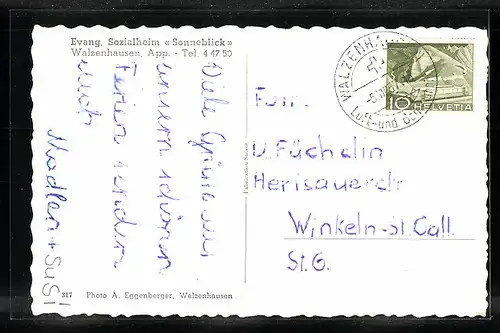 Evang. Sozialheim «Sonneblick»
Walzenhausen, App. - Tel. 4 47 50
Viele Grüsse aus
unsern schönen
Ferien senden
euch
Madlen + Susi
Fam.
U. Füchslin
Herisauerstr
Winkeln-St. Gall.
St. G.
WALZENHAUSEN
Luft- und
10 HELVETIA
Fabrication Suisse
317 Photo A. Eggenberger, Walzenhausen